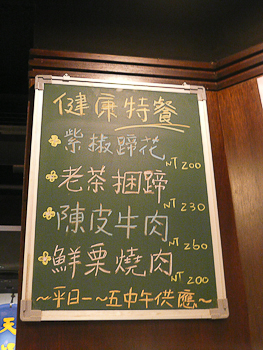 健康特餐
紫椒蹄花 NT 200
老茶捆蹄 NT 230
陳皮牛肉 NT 260
鮮栗燒肉 NT 200
～平日一～五中午供應～
天